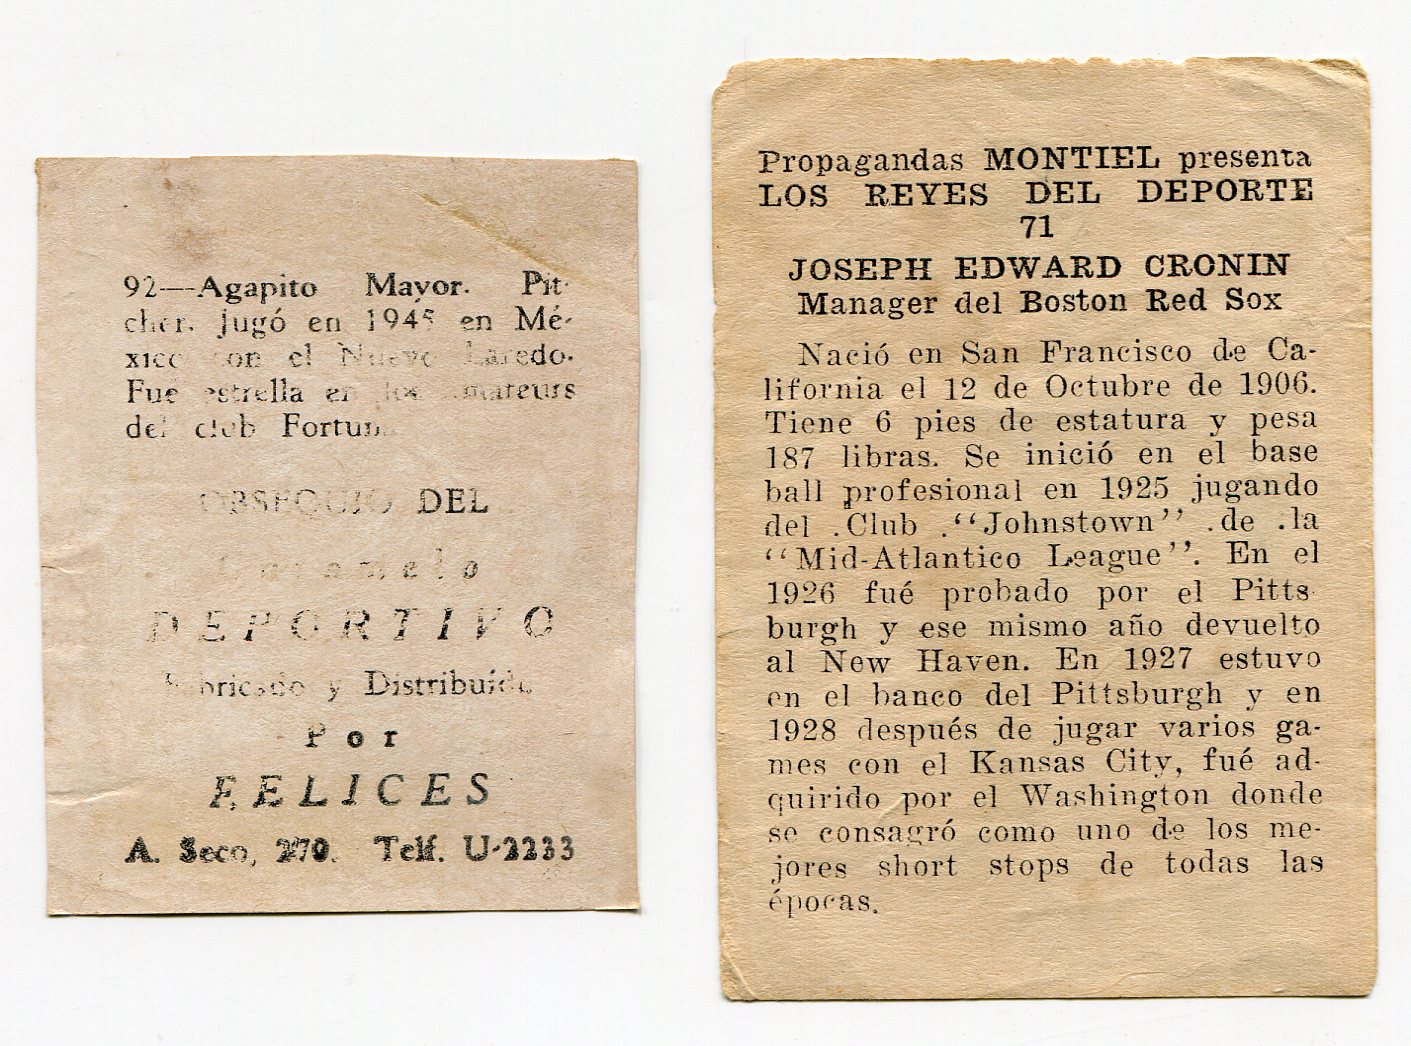 92—Agapito Mayor. Pit-
cher. jugó en 1945 en Mé-
xico con el Nuevo Laredo.
Fue estrella en los amateurs
del club Fortuna
OBSEQUIO DEL
Caramelo
DEPORTIVO
Fabricado y Distribuído
Por
FELICES
A. Seco, 270. Telf. U-2233
Propagandas MONTIEL presenta
LOS REYES DEL DEPORTE
71
JOSEPH EDWARD CRONIN
Manager del Boston Red Sox
Nació en San Francisco de Ca-
lifornia el 12 de Octubre de 1906.
Tiene 6 pies de estatura y pesa
187 libras. Se inició en el base
ball profesional en 1925 jugando
del .Club .“Johnstown” .de .la
“Mid-Atlantico League”. En el
1926 fué probado por el Pitts-
burgh y ese mismo año devuelto
al New Haven. En 1927 estuvo
en el banco del Pittsburgh y en
1928 después de jugar varios ga-
mes con el Kansas City, fué ad-
quirido por el Washington donde
se consagró como uno de los me-
jores short stops de todas las
épocas.